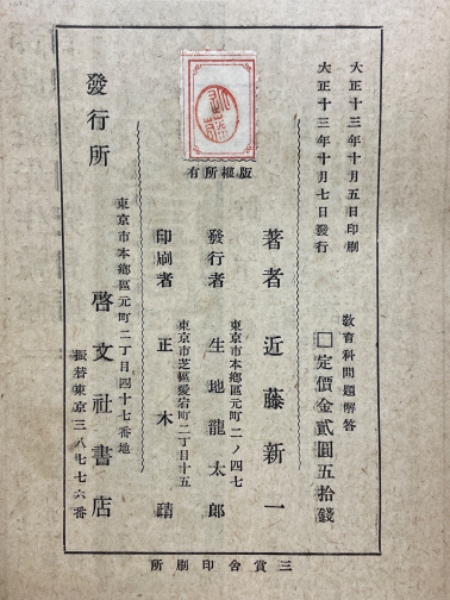 大正十三年十月五日印刷
大正十三年十月七日發行
教育科問題解答
□定價金貳圓五拾錢
版權所有
著者 近藤新一
東京市本鄕區元町二ノ四七
發行者 生地龍太郎
東京市芝區愛宕町二丁目十五
印刷者 正木
發行所
東京市本鄕區元町二丁目四十七番地
啓文社書店
振替東京三八七七六番
三賞舍印刷所